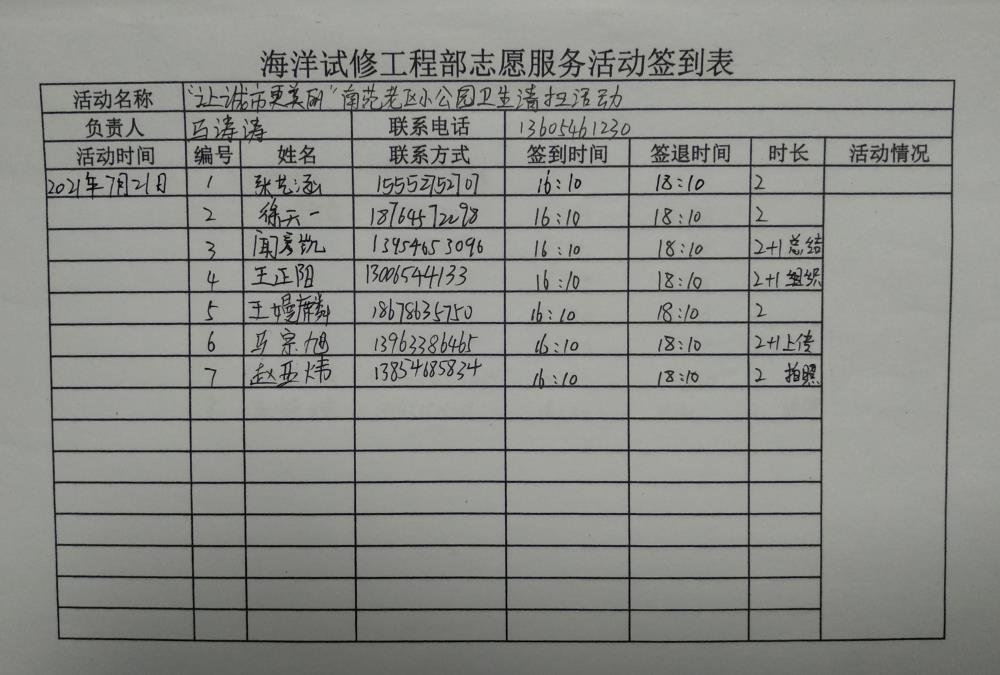 海洋试修工程部志愿服务活动签到表
活动名称 “让城市更美丽”南苑老区小公园卫生清扫活动
负责人 马涛涛 联系电话 13605461230
活动时间 编号 姓名 联系方式 签到时间 签退时间 时长 活动情况
2021年7月21日 1 张艺涵 15552752707 16:10 18:10 2
2 徐天一 18764572298 16:10 18:10 2
3 闻彦凯 13954653096 16:10 18:10 2+1 总结
4 王正阳 13006544133 16:10 18:10 2+1 组织
5 王嫚麟 18678635750 16:10 18:10 2
6 马宗旭 13963386465 16:10 18:10 2+1 上传
7 赵亚炜 13854685834 16:10 18:10 2 拍照